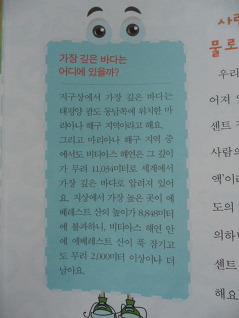 가장 깊은 바다는
어디에 있을까?
지구상에서 가장 깊은 바다는
태평양 괌도 동남쪽에 위치한 마
리아나 해구 지역이라고 해요.
그리고 마리아나 해구 지역 중
에서도 비티아스 해연은 그 깊이
가 무려 11,034미터로 세계에서
가장 깊은 바다로 알려져 있어
요. 지상에서 가장 높은 곳이 에
베레스트 산의 높이가 8,848미터
에 불과하니, 비티아스 해연 안
에 에베레스트 산이 푹 잠기고
도 무려 2,000미터 이상이나 더
남아요.
물로
우리
어져
센트
사람의
액이
도의
의하
센트
해요